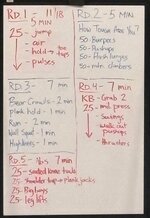 RD. 1 - 11/18
5 MIN
25 - jump
- air
- hold → toe taps
- pulses
RD. 2 - 5 MIN
How Tough Are You?
50 Burpees
50 Pushups
50 Plank lunges
50 mtn. climbers
RD. 3 - 7 min
Bear Crawls - 2 min
plank hold - 1 min
Run - 2 min
Wall Squat - 1 min
High knees - 1 min
RD. 4 - 7 min
KB - Grab 2
25 - mil press
- Swings
- walk out pushups
- thrusters
RD. 5 - Abs 7 min
25 - seated knee tucks
25 - shoulder tap → plank jacks
25 leg lifts